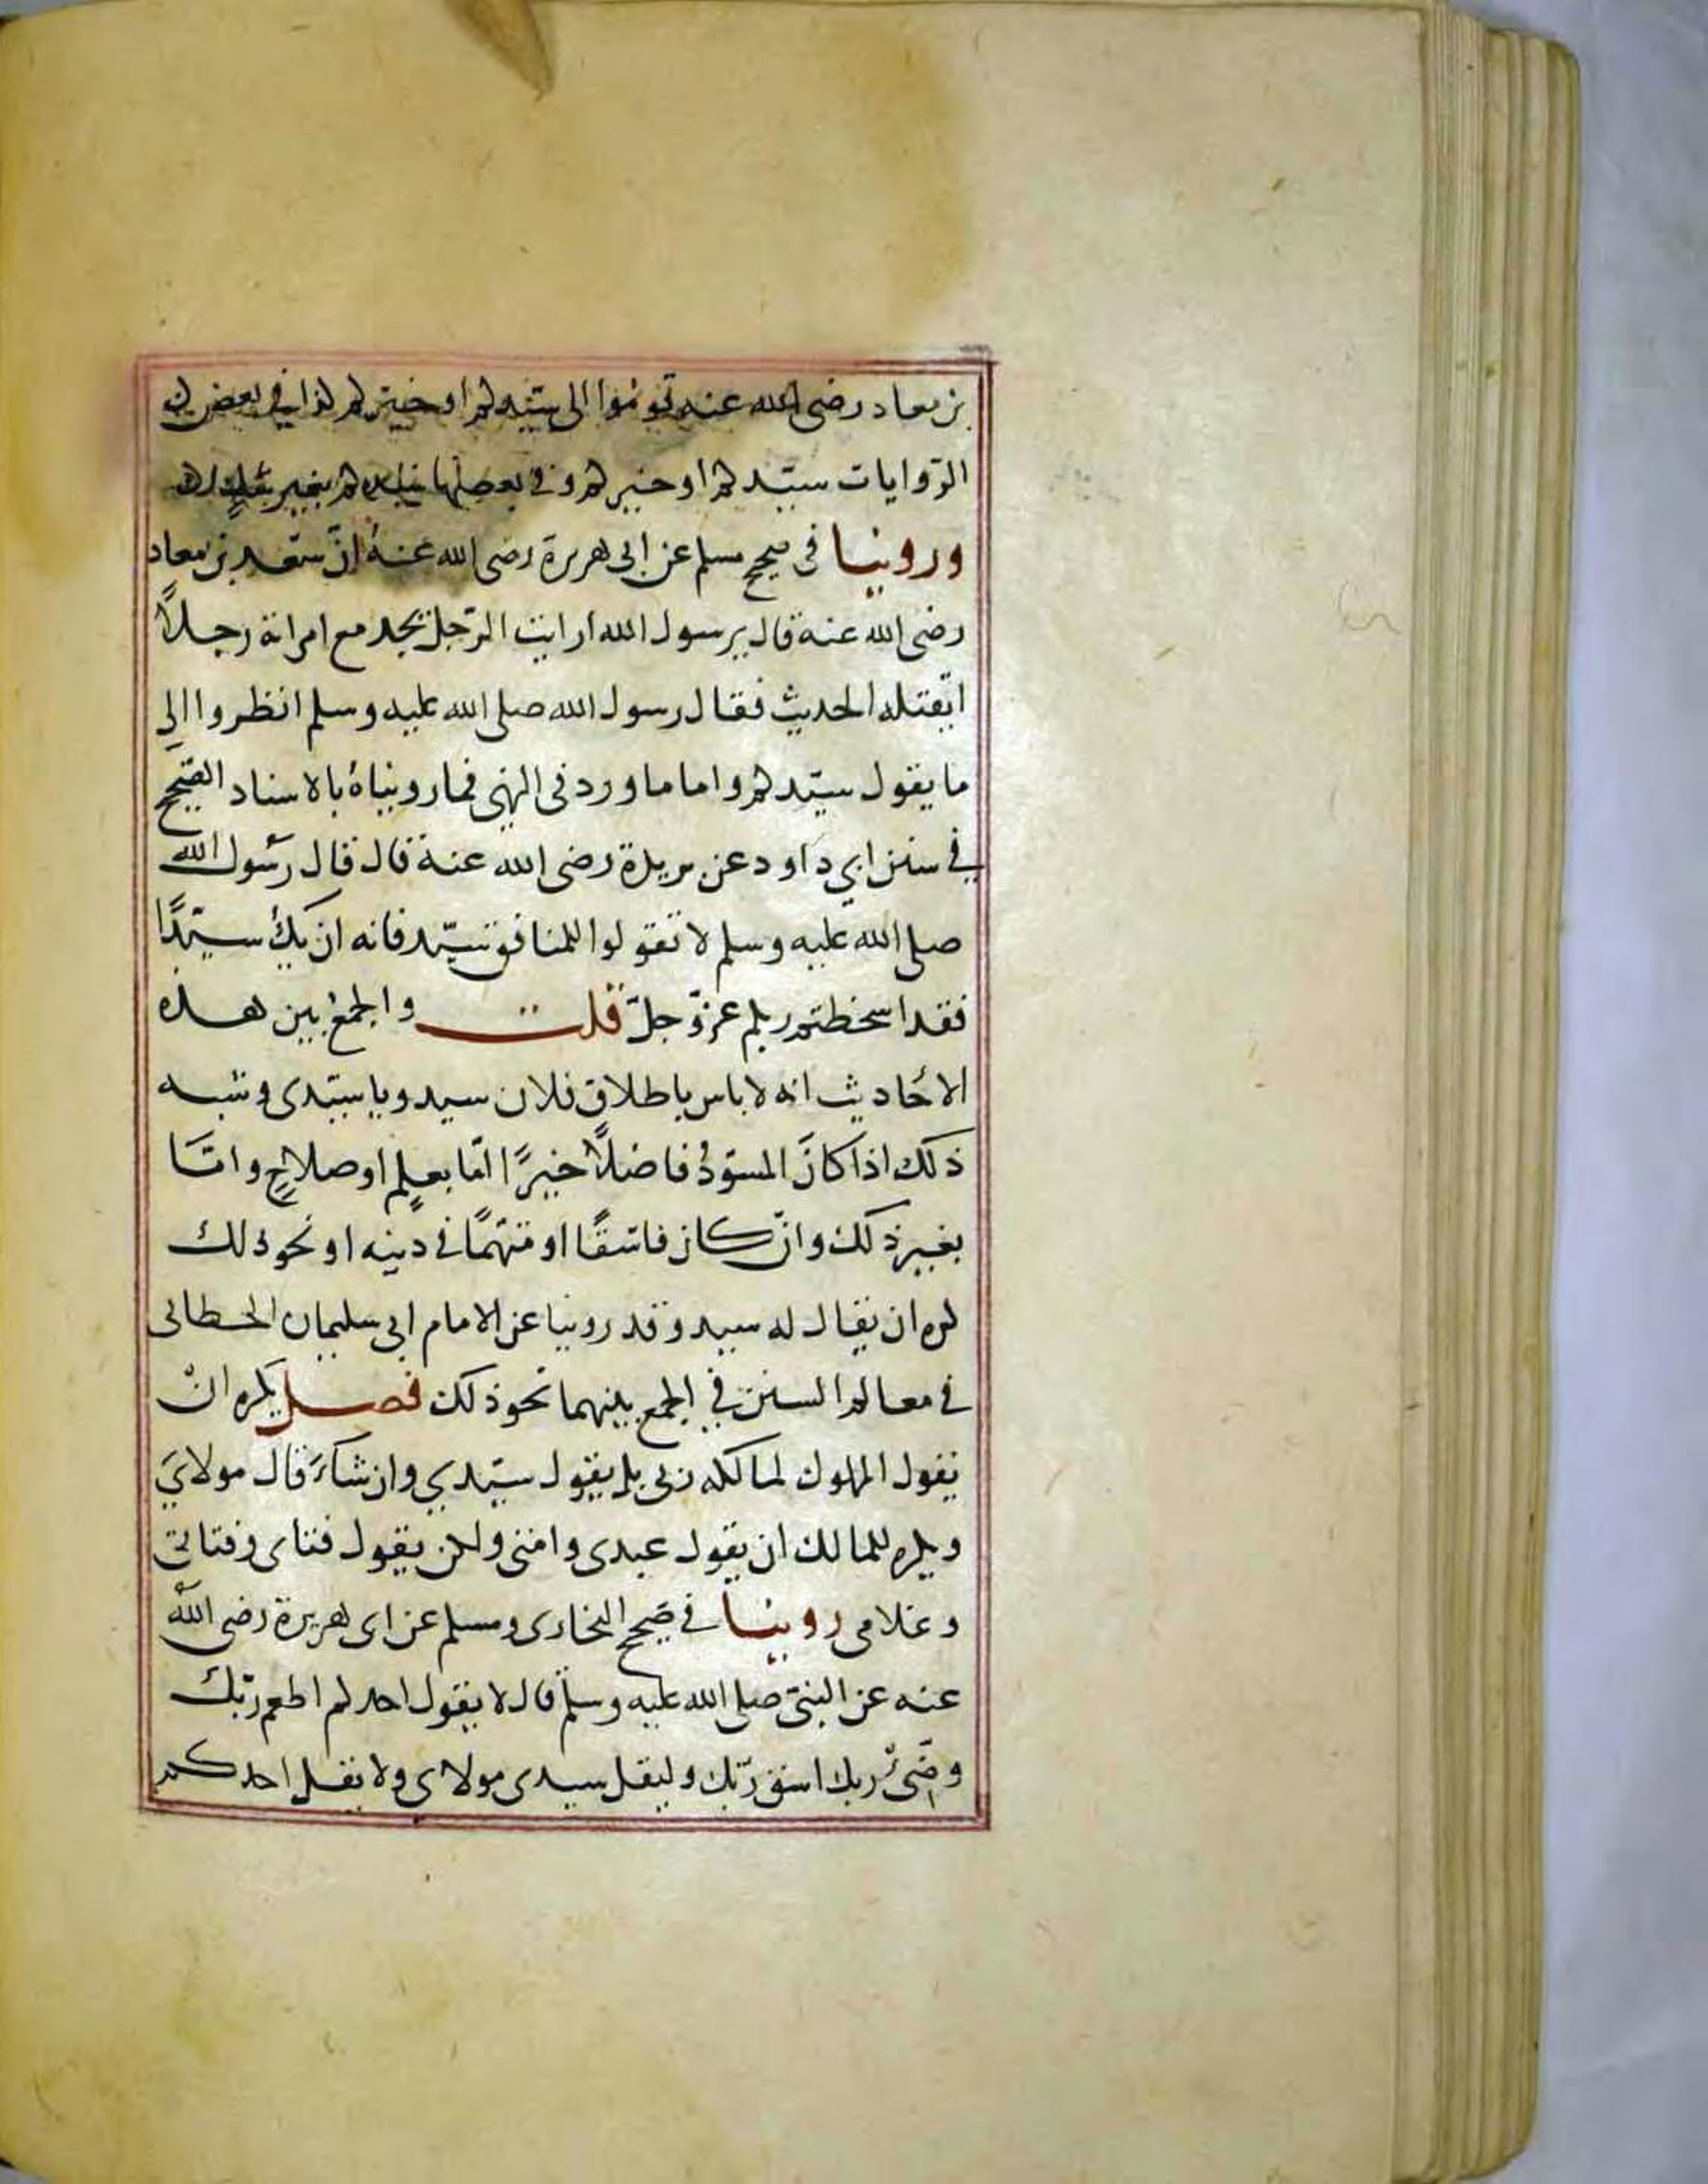 بن معاد رضى الله عنه قوموا الى سيدكم او خيركم كذا في بعض
الروايات سيدكم او خيركم وفى بعضها سيدكم بغير شك
وروينا فى صحيح مسلم عن ابى هريرة رضى الله عنه ان سعد بن معاد
رضى الله عنه قال يرسول الله ارايت الرّجل يجد مع امراته رجلاً
ايقتله الحديث فقال رسول الله صلى الله عليه وسلم انظروا الى
ما يقول سيّدكم واما ما ورد فى النهى فما رويناهُ بالاسناد الصّحيح
في سنن ابي داود عن بريدة رضى الله عنه قال قال رسُول الله
صلى الله عليه وسلم لا تقولوا للمنافق سيّد فانه ان يكُ سيّدًا
فقد اسخطتم ربكم عزّ وجلّ قلت والجمعُ بين هذه
الاحَاديث انه لا باس باطلاق فلان سيد ويا سيّدى وشبه
ذلك اذا كانَ المسوّدُ فاضلاً خيرًا امّا بعلمٍ او صلاحٍ وامّا
بغير ذلك وان كان فاسقًا او متهمًا فى دينه او نحو ذلك
كره ان يقال له سيد وقد روينا عن الامام ابى سليمان الخطابى
فى معالم السنن في الجمع بينهما نحو ذلك فصل يكره انْ
يقول المملوك لمالكه ربى بل يقول سيّدي وان شاءَ قال مولايَ
ويكره للمالك ان يقول عبدى وامتى ولكن يقول فتاى وفتاتى
وغلامى روينا فى صَحيح البخارى ومسلم عن ابى هريرة رضى الله
عنه عن النبىّ صلى الله عليه وسلّم قال لا يقول احدكم اطعم ربّك
وضّئْ ربك اسق ربّك وليقل سيدى مولاى ولا يقل احدكم